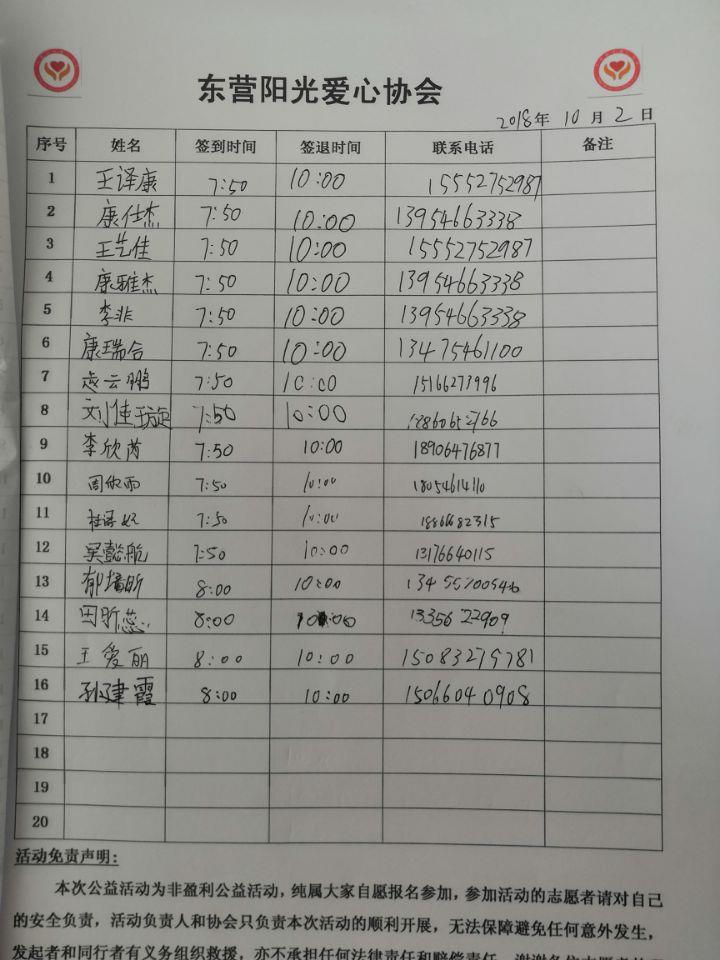 东营阳光爱心协会
2018年 10 月 2 日
序号 姓名 签到时间 签退时间 联系电话 备注
1 王译康 7:50 10:00 15552752987
2 康仕杰 7:50 10:00 13954663338
3 王艺佳 7:50 10:00 15552752987
4 康雅杰 7:50 10:00 13954663338
5 李非 7:50 10:00 13954663338
6 康瑞合 7:50 10:00 13475461100
7 云鹏 7:50 10:00 15166273996
8 刘佳璇 7:50 10:00
9 李欣芮 7:50 10:00 18906476877
10 周欣雨 7:50 10:00 18054614110
11 7:50 10:00 18866682315
12 吴懿航 7:50 10:00 13176640115
13 8:00 10:00
14 田昕蕊 8:00 10:00 13356622909
15 王爱丽 8:00 10:00 15083279781
16 孙建霞 8:00 10:00 15066040908
17
18
19
20
活动免责声明:
本次公益活动为非盈利公益活动，纯属大家自愿报名参加，参加活动的志愿者请对自己
的安全负责，活动负责人和协会只负责本次活动的顺利开展，无法保障避免任何意外发生，
发起者和同行者有义务组织救援，亦不承担任何法律责任和赔偿责任